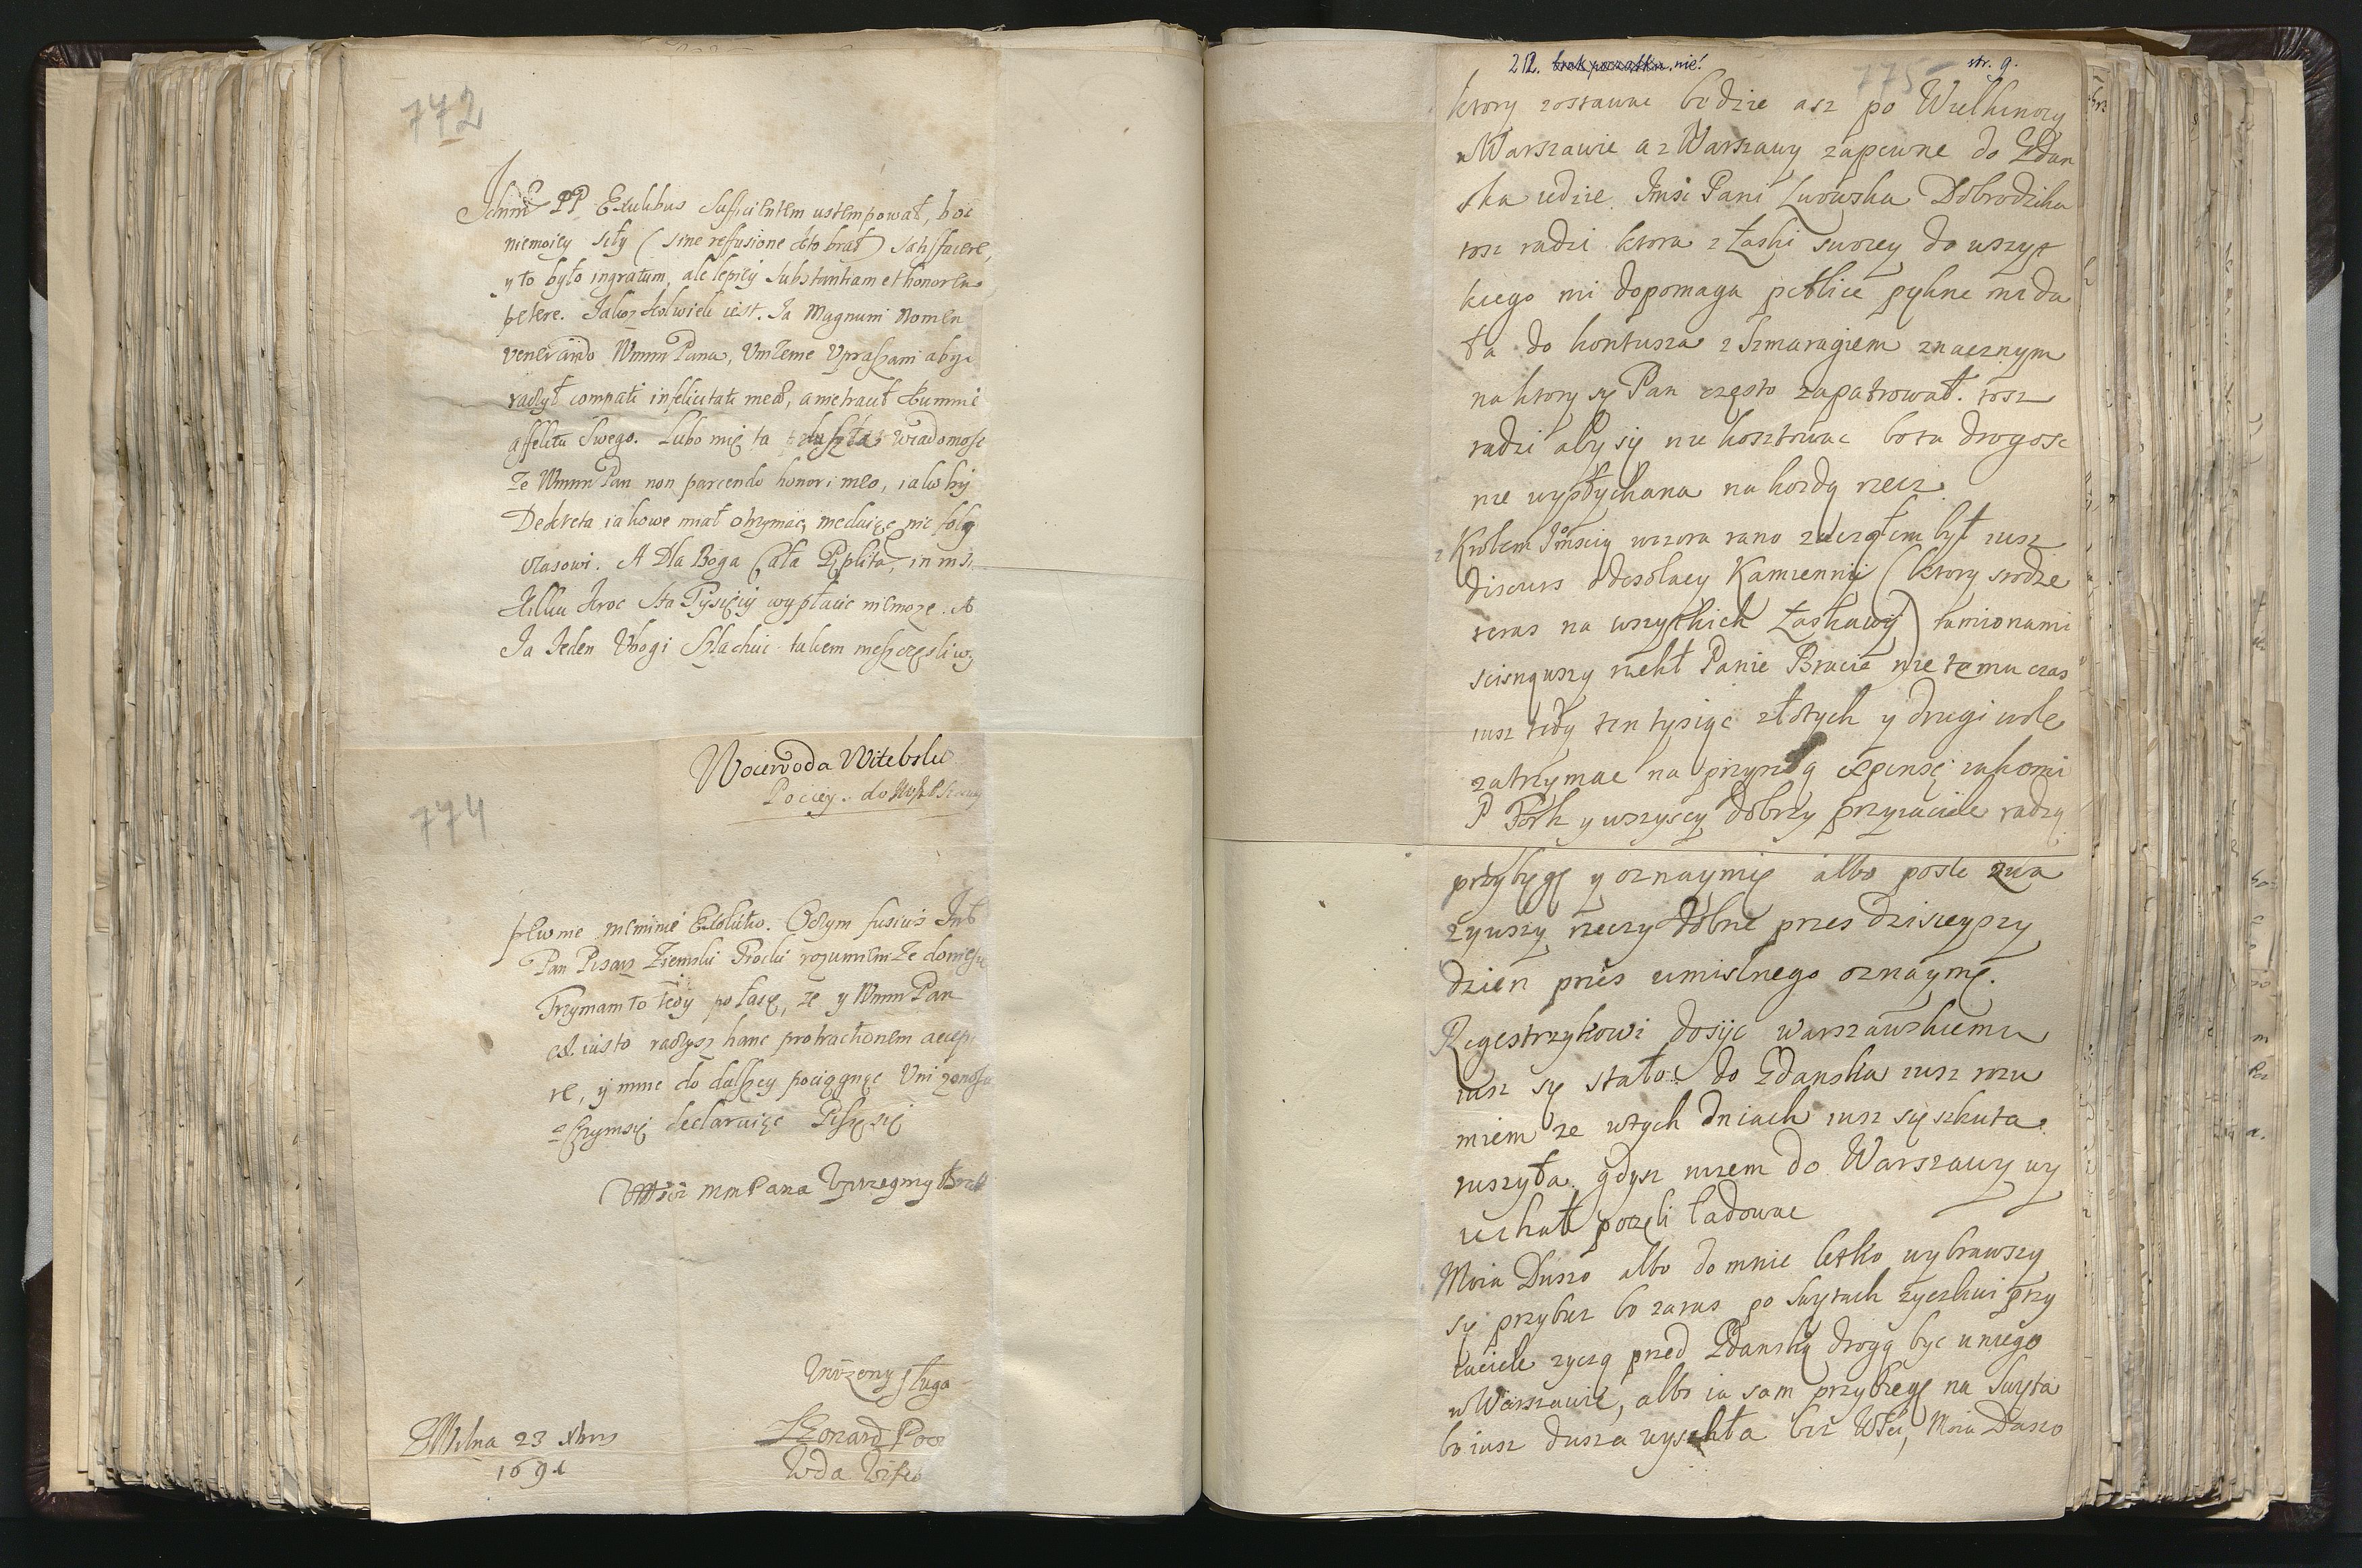 742
Ichmć PP Exulibus sufficientem ustempował, boć
niemoiey siły (sine reffusione kto brał) satisfacere,
y to było ingratum, ale lepiey substantiam et honorem
petere. Jakożkolwiek iest. Ja Magnum Nomen
venerando Wmm Pana, Vnizenie Vpraszam abyś
raczył compati infelicitati meæ, a nietracił ku mnie
affektu swego. Lubo mię ta wiadomość
że Wmm Pan non parcendo honori meo, iakbij
Dekreta iakowe miał otrzymać, niedaięc nic
czasowi. A Dla Boga Cała Rzplita,
kilku kroć sta Tysięcij wypłacić niemoże. A
Ja Jeden Vbogi Szlachcic takem nieszczęsliwy
Woiewoda Witebski
Pociey. do
774
pewnie nieminie Exolutio. Oczym fusius Jmć
Pan Pisarz Ziemski Trocki rozumiem że doniesie
Trzymam to tedy po łasce, że y Wmm Pan
ex iusto raczysz hanc protractionem accipe
re, y mnie do dalszey pociągnąć Vnizonosci
z Czymsię declaruięc Piszę się
mmPana Vprzeymy Brat
Vniżony sługa
Z Wilna 23 Xbris
1691
Leonard Poc
Wda Witeb
212. brak początku. nie!
775
str. 9.
ktory zostawac bedzie asz po Wielkinocy
w Warszawie a z Warszawy zapewne do Gdan
ska iedzie. Jmsci Pani Lwowska Dobrodzika
tosz radzi ktora z Łaski swoiey do wszyt
kiego mi dopomaga petlice pykne mi da
ła do kontusza z Szmaragiem znacznym
na ktory sy Pan często zapatrował. tosz
radzi aby się nie kosztowac bo tu drogosc
nie wysłychana na kozdą rzecz.
z Krolem Jmscią wczora rano był iusz
discurs o desolacy Kamiennij (ktory srodze
teras na wszytkich Łaskawij) ramionami
scisnąwszy rzekł Panie Bracie nie temu czas
iusz tedy ten tysiąc złotych y drugi wole
zatrzymac na przyszłą expensę iakomi
P y wszyscy dobrzy przyiaciele radzą
przybęgę y oznaymię albo posle zwa
zywszy rzeczy dobrze przes dzisieyszy
dzien przes umislnego oznaymę.
Regestrzykowi dosijc warszawskiemu
iusz sę stało. do Gdanska iusz rozu
miem ze wtych dniach iusz sę szkuta
ruszyła. gdysz nizem do Warszawy wy
iechał poczęli ładowac
Moia Duszo albo do mnie letko wybrawszy
sę przybącz bo zaras po Swętach zyczliwi przy
iaciele zyczą przed Gdanską drogą byc u niego
w Warszawie, albo ia sam przybiegę na Swęta
bo iusz dusza wyschła bez WSci, Moia Duszo